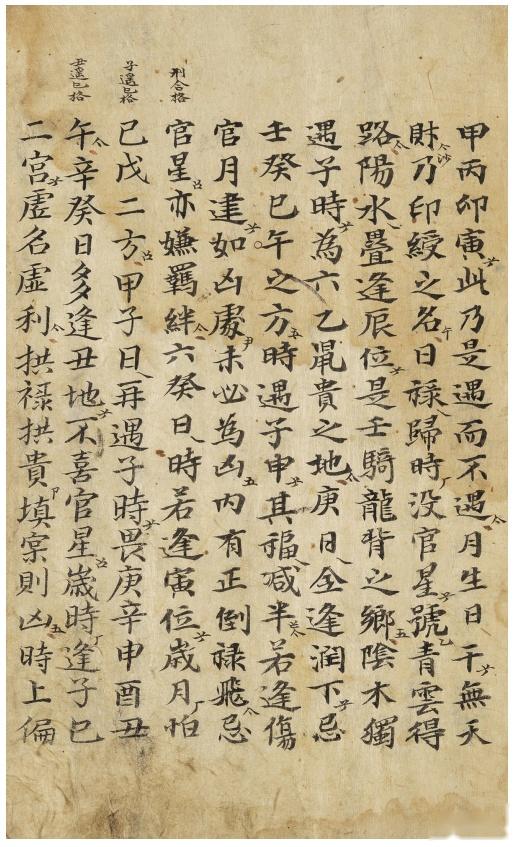 甲丙卯寅此乃是遇而不遇月生日干無天
財乃印綬之名日禄歸時没官星號青雲得
路陽水疊逢辰位是壬騎龍背之鄉陰木獨
遇子時為六乙鼠貴之地庚日全逢潤下忌
壬癸巳午之方時遇子申其福减半若逢傷
官月建如凶處未必為凶内有正倒禄飛忌
刑合格
官星亦嫌羈絆六癸日時若逢寅位歲月怕
子遥巳格
巳戊二方甲子日再遇子時畏庚辛申酉丑
丑遥巳格
午辛癸日多逢丑地不喜官星歲時逢子巳
二宮虚名虚利拱禄拱貴填宲則凶時上偏